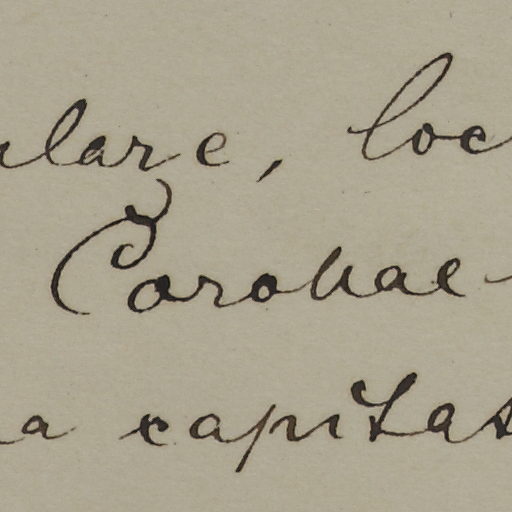 lare, loc
Corollae
a capitat